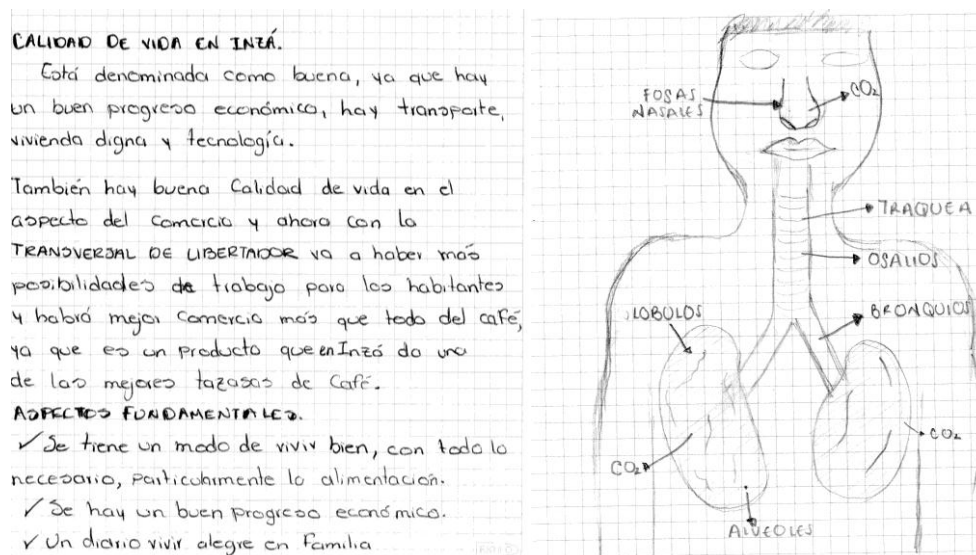 CALIDAD DE VIDA EN INZÁ.
Está denominada como buena, ya que hay
un buen progreso económico, hay transporte,
vivienda digna y tecnología.
También hay buena Calidad de vida en el
aspecto del comercio y ahora con la
TRANSVERSAL DE LIBERTADOR va a haber más
posibilidades de trabajo para los habitantes
y habrá mejor comercio más que todo del café,
ya que es un producto que en Inzá da una
de las mejores tazasas de Café.
ASPECTOS FUNDAMENTALES.
✓ Se tiene un modo de vivir bien, con todo lo
necesario, particularmente la alimentación.
✓ Se hay un buen progreso económico.
✓ Un diario vivir alegre en Familia
FOSAS
NASALES
CO₂
TRAQUEA
OSALIOS
LOBULOS
BRONQUIOS
CO₂
CO₂
ALVEOLES